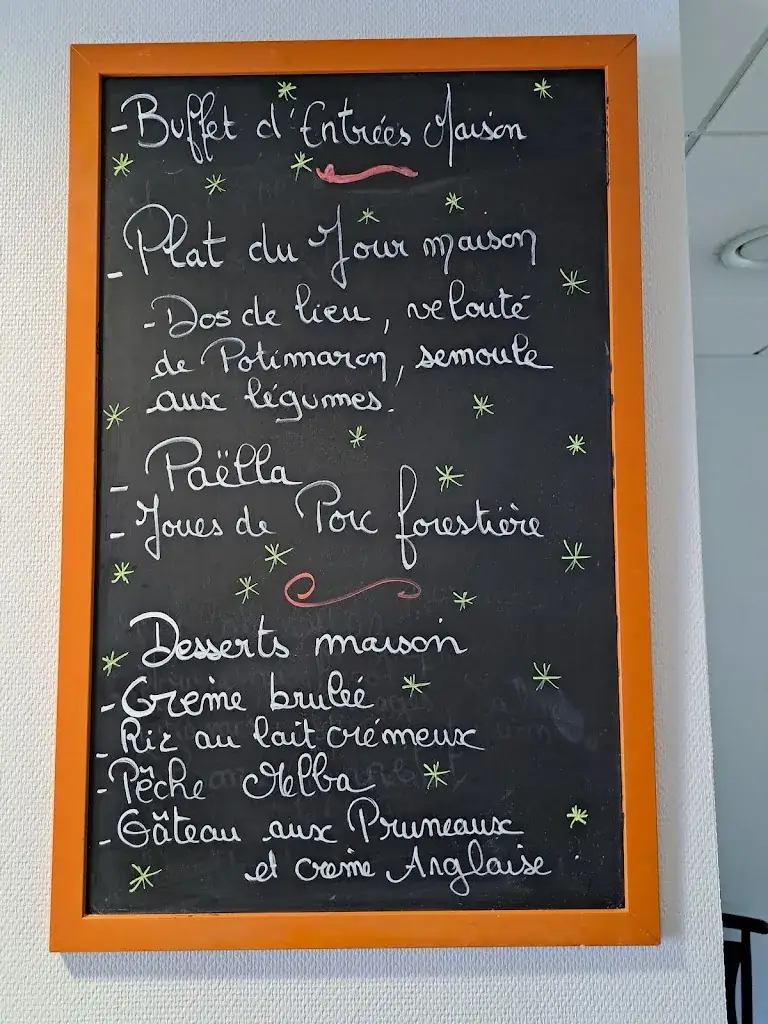 - Buffet d'Entrées Maison
- Plat du Jour maison
- Dos de lieu, velouté
de Potimaron, semoule
aux légumes.
- Paëlla
- Joues de Porc forestière
Desserts maison
- Crème brulée
- Riz au lait crémeux
- Pêche Melba
- Gâteau aux Pruneaux
et crème Anglaise